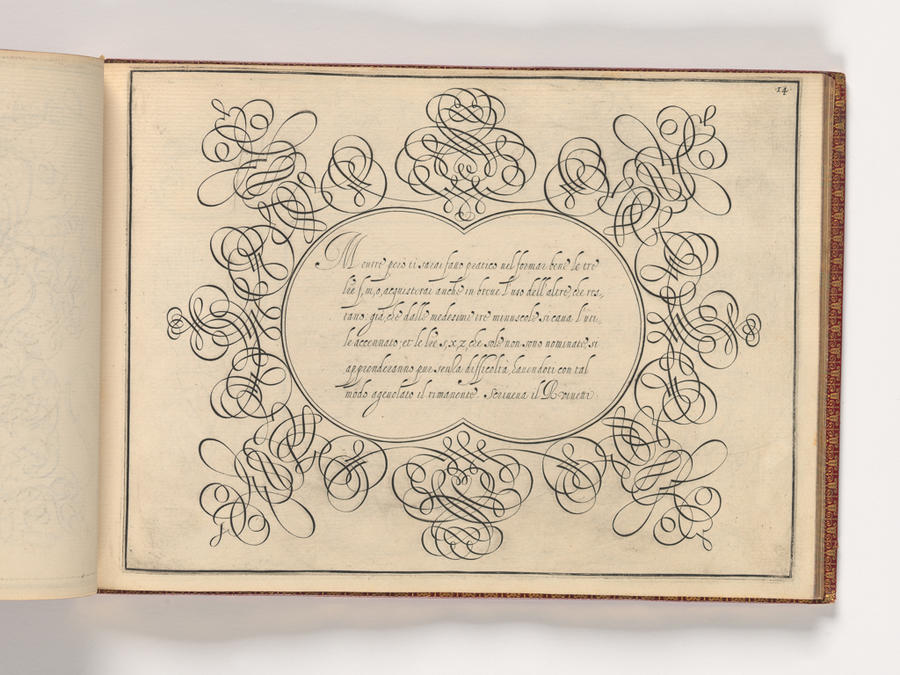 14
Mentre però ti sarai fatto pratico nel formar bene le tre
lr̃e f, m, o, acquisterai anche in breue l'uso dell'altre, che res,
tano, già che dalle medesime tre minuscole si caua l'uti,
le accennato; et le lr̃e s, x, z, che sole non sono nominate, si
apprenderanno pur senza difficoltà, hauendoti con tal
modo ageuolato il rimanente. Scriueua il